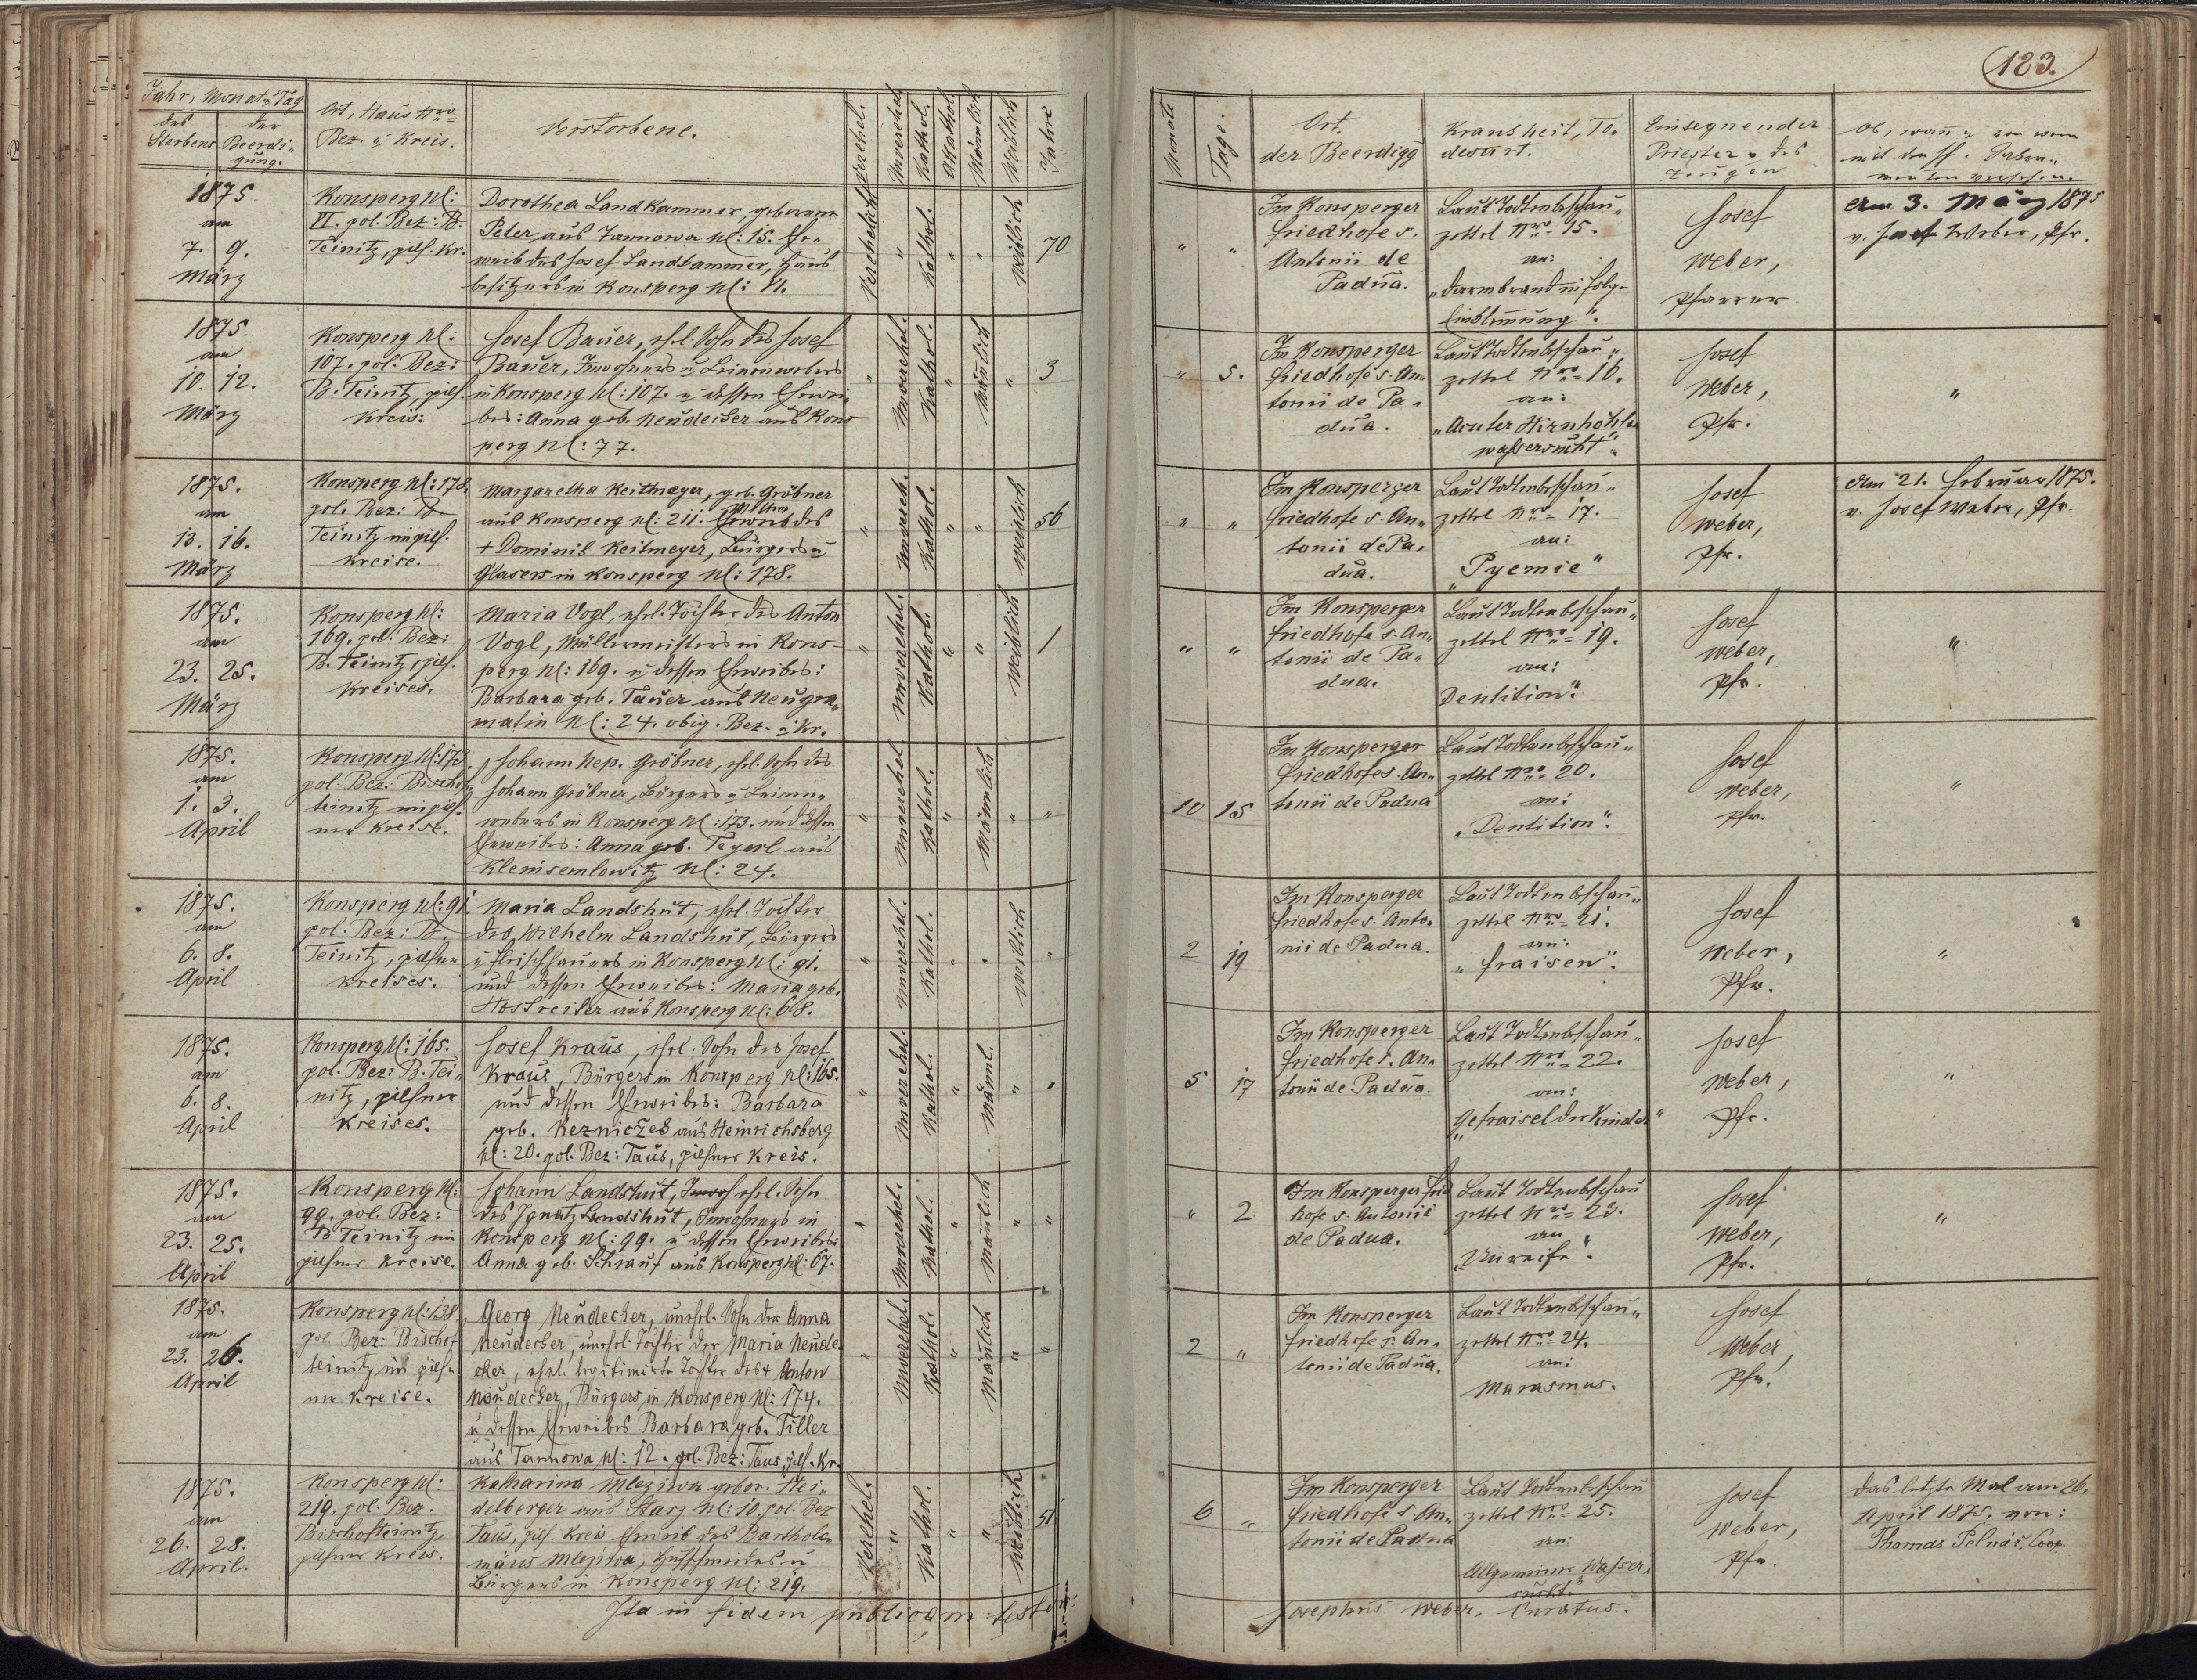 123.
Jahr, Monat u Tag
des Sterbens
der Beerdi„
gung.
Ort, Haus Nro
Bez. u Kreis.
Verstorbene.
Verehel.
Unverehel.
Kathol.
Akathol.
Mänlich
Weiblich
Jahre
Monate
Tage.
Ort.
der Beerdigg
Krankheit, To„
desart.
Einsegnender
Priester u des
Zeugen
Ob, wan u von wem
mit den hl. Sakra„
menten versehen.
1875
am
7. 9.
März
Konsperg N:
VI. pol. Bez: B.
Teinitz, pils. Kr.
Dorothea Landkammer, geborene
Peter, aus Tannowa N: 15. Ehe„
weib des Josef Landkammer, Haus
besitzers in Konsperg N: VI.
Verehelicht
" Kathol. " " weiblich 70
" "
Im Konsperger
Friedhofe s.
Antonii de
Padua.
Laut Todtenbeschau„
zettel Nro 15.
an:
„Darmbrand in Folge
Einklemmung".
Josef
Weber,
Pfarrer.
Am 3. März 1875
v. Josef Weber, Pfr.
1875
am
10. 12.
März
Konsperg N:
107. pol. Bez:
B. Teinitz, pils.
Kreis:
Josef Bauer, ehl. Sohn des Josef
Bauer, Inwohners u Leinenwebers
in Konsperg N: 107. u dessen Ehewei
bes: Anna geb. Neudecker aus Kons
perg N: 77.
" Unverehel. Kathol. " Mänlich " 3
" 5.
Im Konsperger
Friedhofe s. An„
tonii de Pa„
dua.
Laut Todtenbeschau„
zettel Nro 16.
an:
„Acuter Hirnhöhlen
wassersucht".
Josef
Weber,
Pfr.
"
1875.
am
13. 16.
März
Konsperg N: 178.
pol. Bez: B.
Teinitz im pils.
Kreise.
Margaretha Keitmeyer, geb. Gröbner
aus Konsperg N: 211. Witwe des
+ Dominik Keitmeyer, Bürgers u
Glasers in Konsperg N: 178.
" Unvereh. Kathol. " " weiblich 56
" "
Im Konsperger
Friedhofe s. An„
tonii de Pa„
dua.
Laut Todtenbeschau„
zettel Nro 17.
an:
„Pyemie"
Josef
Weber,
Pfr.
Am 21. Februar 1875.
v. Josef Weber, Pfr.
1875.
am
23. 25.
März
Konsperg N:
169. pol. Bez:
B. Teinitz, pils.
Kreises.
Maria Vogl, ehel. Tochter des Anton
Vogl, Müllermeisters in Kons„
perg N: 169. u dessen Eheweibes:
Barbara geb. Tauer aus Neugra„
matin N: 24. obig. Bez. u Kr.
" Unverehel. Kathol. " " Weiblich 1
" "
Im Konsperger
Friedhofe s. An„
tonii de Pa„
dua.
Laut Todtenbeschau„
zettel Nro 19.
an:
Dentition".
Josef
Weber,
Pfr.
"
1875.
am
1. 3.
April
Konsperg N: 173.
pol. Bez: Bischof„
teinitz im pils„
ner Kreise.
Johann Nep. Gröbner, ehl. Sohn des
Johann Gröbner, Bürgers u Leinen„
webers in Konsperg N: 173. und dessen
Eheweibes: Anna geb. Teyerl aus
Kleinsemlowitz N: 24.
" Unverehel. Kathol. " Mänlich " "
10 15
Im Konsperger
Friedhofe s. An„
tonii de Padua
Laut Todtenbeschau„
zettel Nro 20.
an:
„Dentition".
Josef
Weber,
Pfr.
"
1875.
am
6. 8.
April
Konsperg N: 91.
pol. Bez: B.
Teinitz, pilsner
Kreises.
Maria Landshut, ehl. Tochter
des Wilhelm Landshut, Bürgers
u Fleischhauers in Konsperg N: 91.
und dessen Eheweibes: Maria geb.
Hostreiter aus Konsperg N: 68.
" Unverehel. Kathol. " " weiblich "
2 19
Im Konsperger
Friedhofe s. Anto„
nii de Padua.
Laut Todtenbeschau„
zettel Nro 21.
an:
„Fraisen".
Josef
Weber,
Pfr.
"
1875.
am
6. 8.
April
Konsperg N: 165.
pol. Bez: B. Tei„
nitz, pilsner
Kreises.
Josef Kraus, ehel. Sohn des Josef
Kraus, Bürgers in Konsperg N: 165.
und dessen Eheweibes: Barbara
geb. Kezniczek aus Heinrichsberg
N: 20. pol. Bez: Taus, pilsner Kreis.
" Unverehel. Kathol. " Mänl. " "
5 17
Im Konsperger
Friedhofe s. An„
tonii de Padua.
Laut Todtenbeschau„
zettel Nro 22.
an:
„Gefraisel der Kinder"
Josef
Weber,
Pfr.
"
1875.
am
23. 25.
April
Konsperg N:
99. pol. Bez:
B Teinitz im
pilsner Kreise.
Johann Landshut, ehel. Sohn
des Ignatz Landshut, Inwohners in
Konsperg N: 99. u dessen Eheweibes
Anna geb. Schrauf aus Konsperg N: 67.
" Unverehel. Kathol. " Mänlich " "
" 2
Im Konsperger Fried
hofe s. Antonii
de Padua.
Laut Todtenbeschau
zettel Nro 23.
an
„Unreife".
Josef
Weber,
Pfr.
"
1875.
am
23. 26.
April
Konsperg N: 138.
pol. Bez: Bischof
teinitz im pils„
ner Kreise.
Georg Neudecker, unehel. Sohn der Anna
Neudecker, unehel. Tochter der Maria Neude
cker, ehel. legitimirte Tochter des + Anton
Neudecker, Bürgers in Konsperg N: 174.
u dessen Eheweibes Barbara geb. Tiller
aus Tannowa N: 12. pol. Bez: Taus, pils. Kr.
" Unverehel. Kathol. " Mänlich " "
2 "
Im Konsperger
Friedhofe s. An„
tonii de Padua.
Laut Todtenbeschau„
zettel Nro 24.
an:
Marasmus.
Josef
Weber,
Pfr.
1875.
am
26. 28.
April.
Konsperg N:
219. pol. Bez.
Bischofteinitz,
pilsner Kreis.
Katharina Mleziwa gebor. Stei„
delberger aus Starz N: 10. pol. Bez
Taus, pils. Kreis Eheweib des Bartholo„
mäus Mleziwa, Hufschmiedes u
Bürgers in Konsperg N: 219.
Verehel. " Kathol. " " Weiblich 51
6 "
Im Konsperger
Friedhofe s. An„
tonii de Padua
Laut Todtenbeschau
zettel Nro 25.
an:
Allgemeine Wasser„
sucht."
Josef
Weber,
Pfr.
Das letzte Mal am 26.
April 1875. von:
Thomas Pelnář, Coop.
Ita in fidem publicam testor:
Josephus Weber, Curatus.